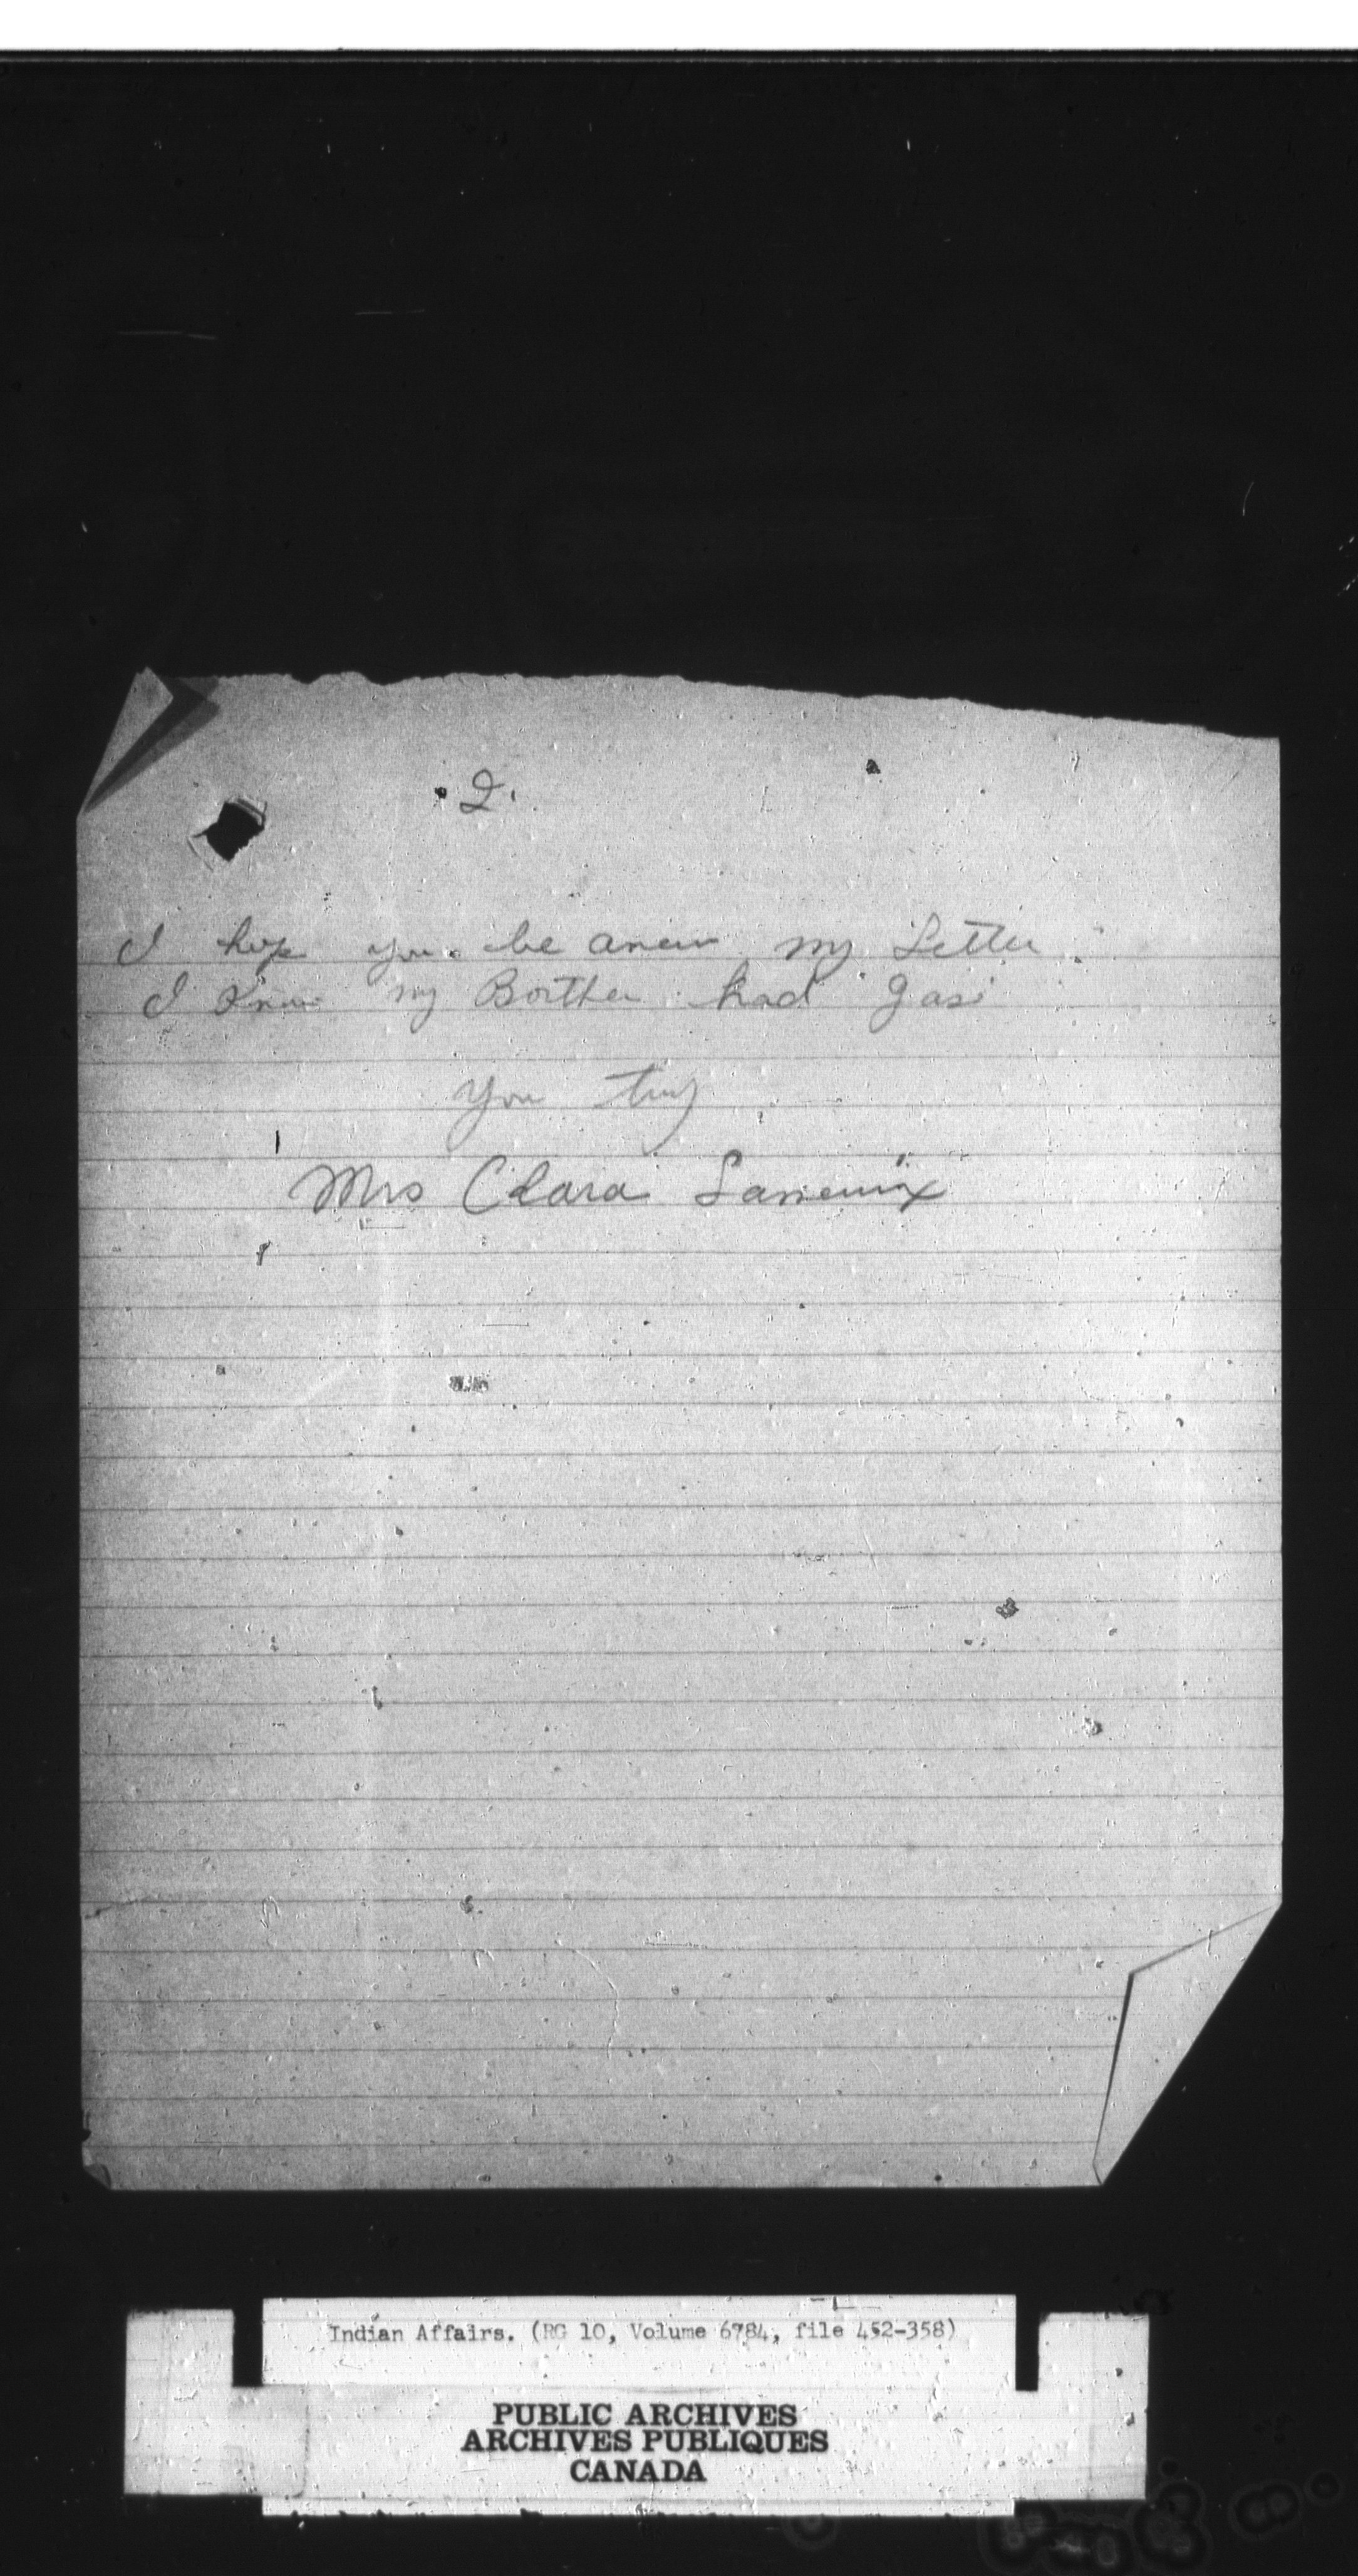 2.
I hope you be answ my Letter
I Know my Borther had gas
You truy
Mrs Clara
Indian Affairs. (RG 10, Volume 6784, file 452-358)
PUBLIC ARCHIVES
ARCHIVES PUBLIQUES
CANADA